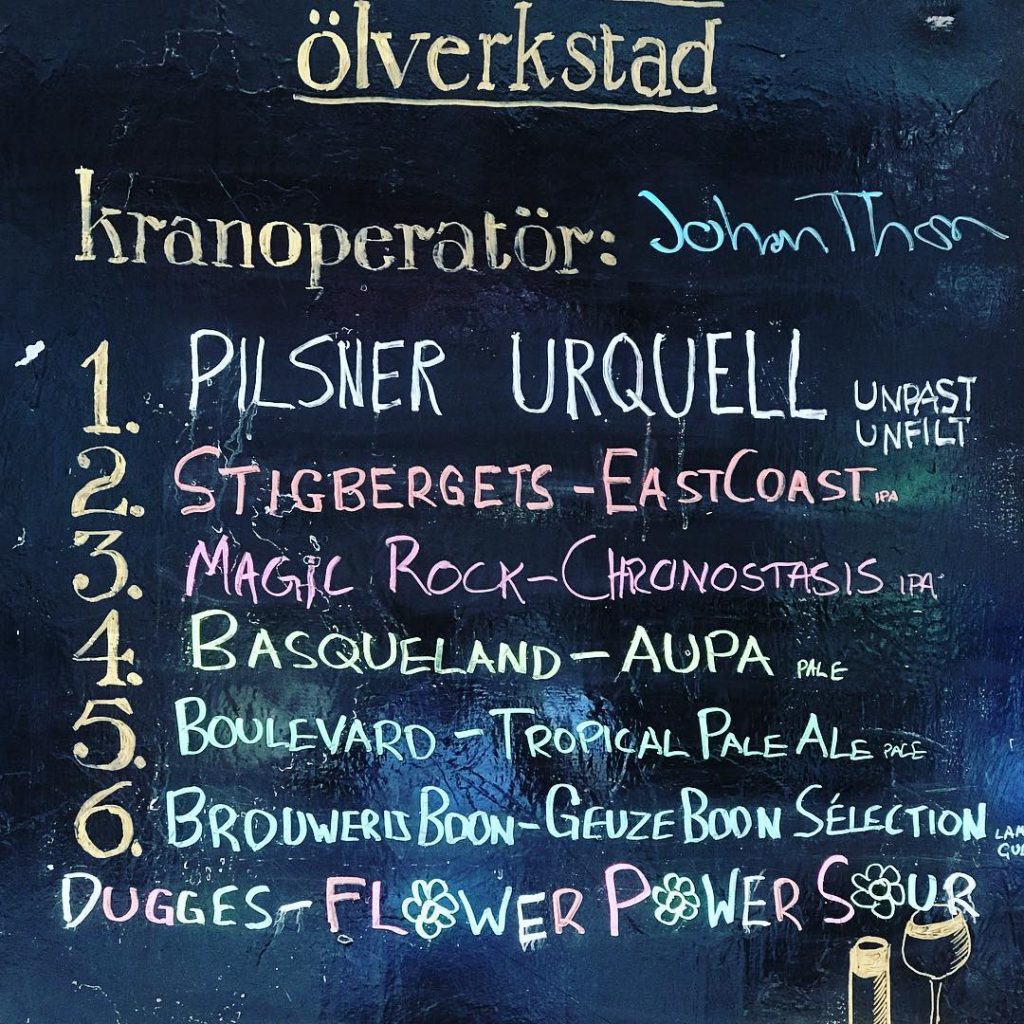 ölverkstad
kranoperatör: Johan Thon
1. PILSNER URQUELL UNPAST
UNFILT
2. STIGBERGETS - EASTCOAST IPA
3. MAGIC ROCK - CHRONOSTASIS IPA
4. BASQUELAND - AUPA PALE
5. BOULEVARD - TROPICAL PALE ALE PALE
6. BROUWERIJ BOON - GEUZE BOON SÉLECTION
DUGGES - FLOWER POWER SOUR